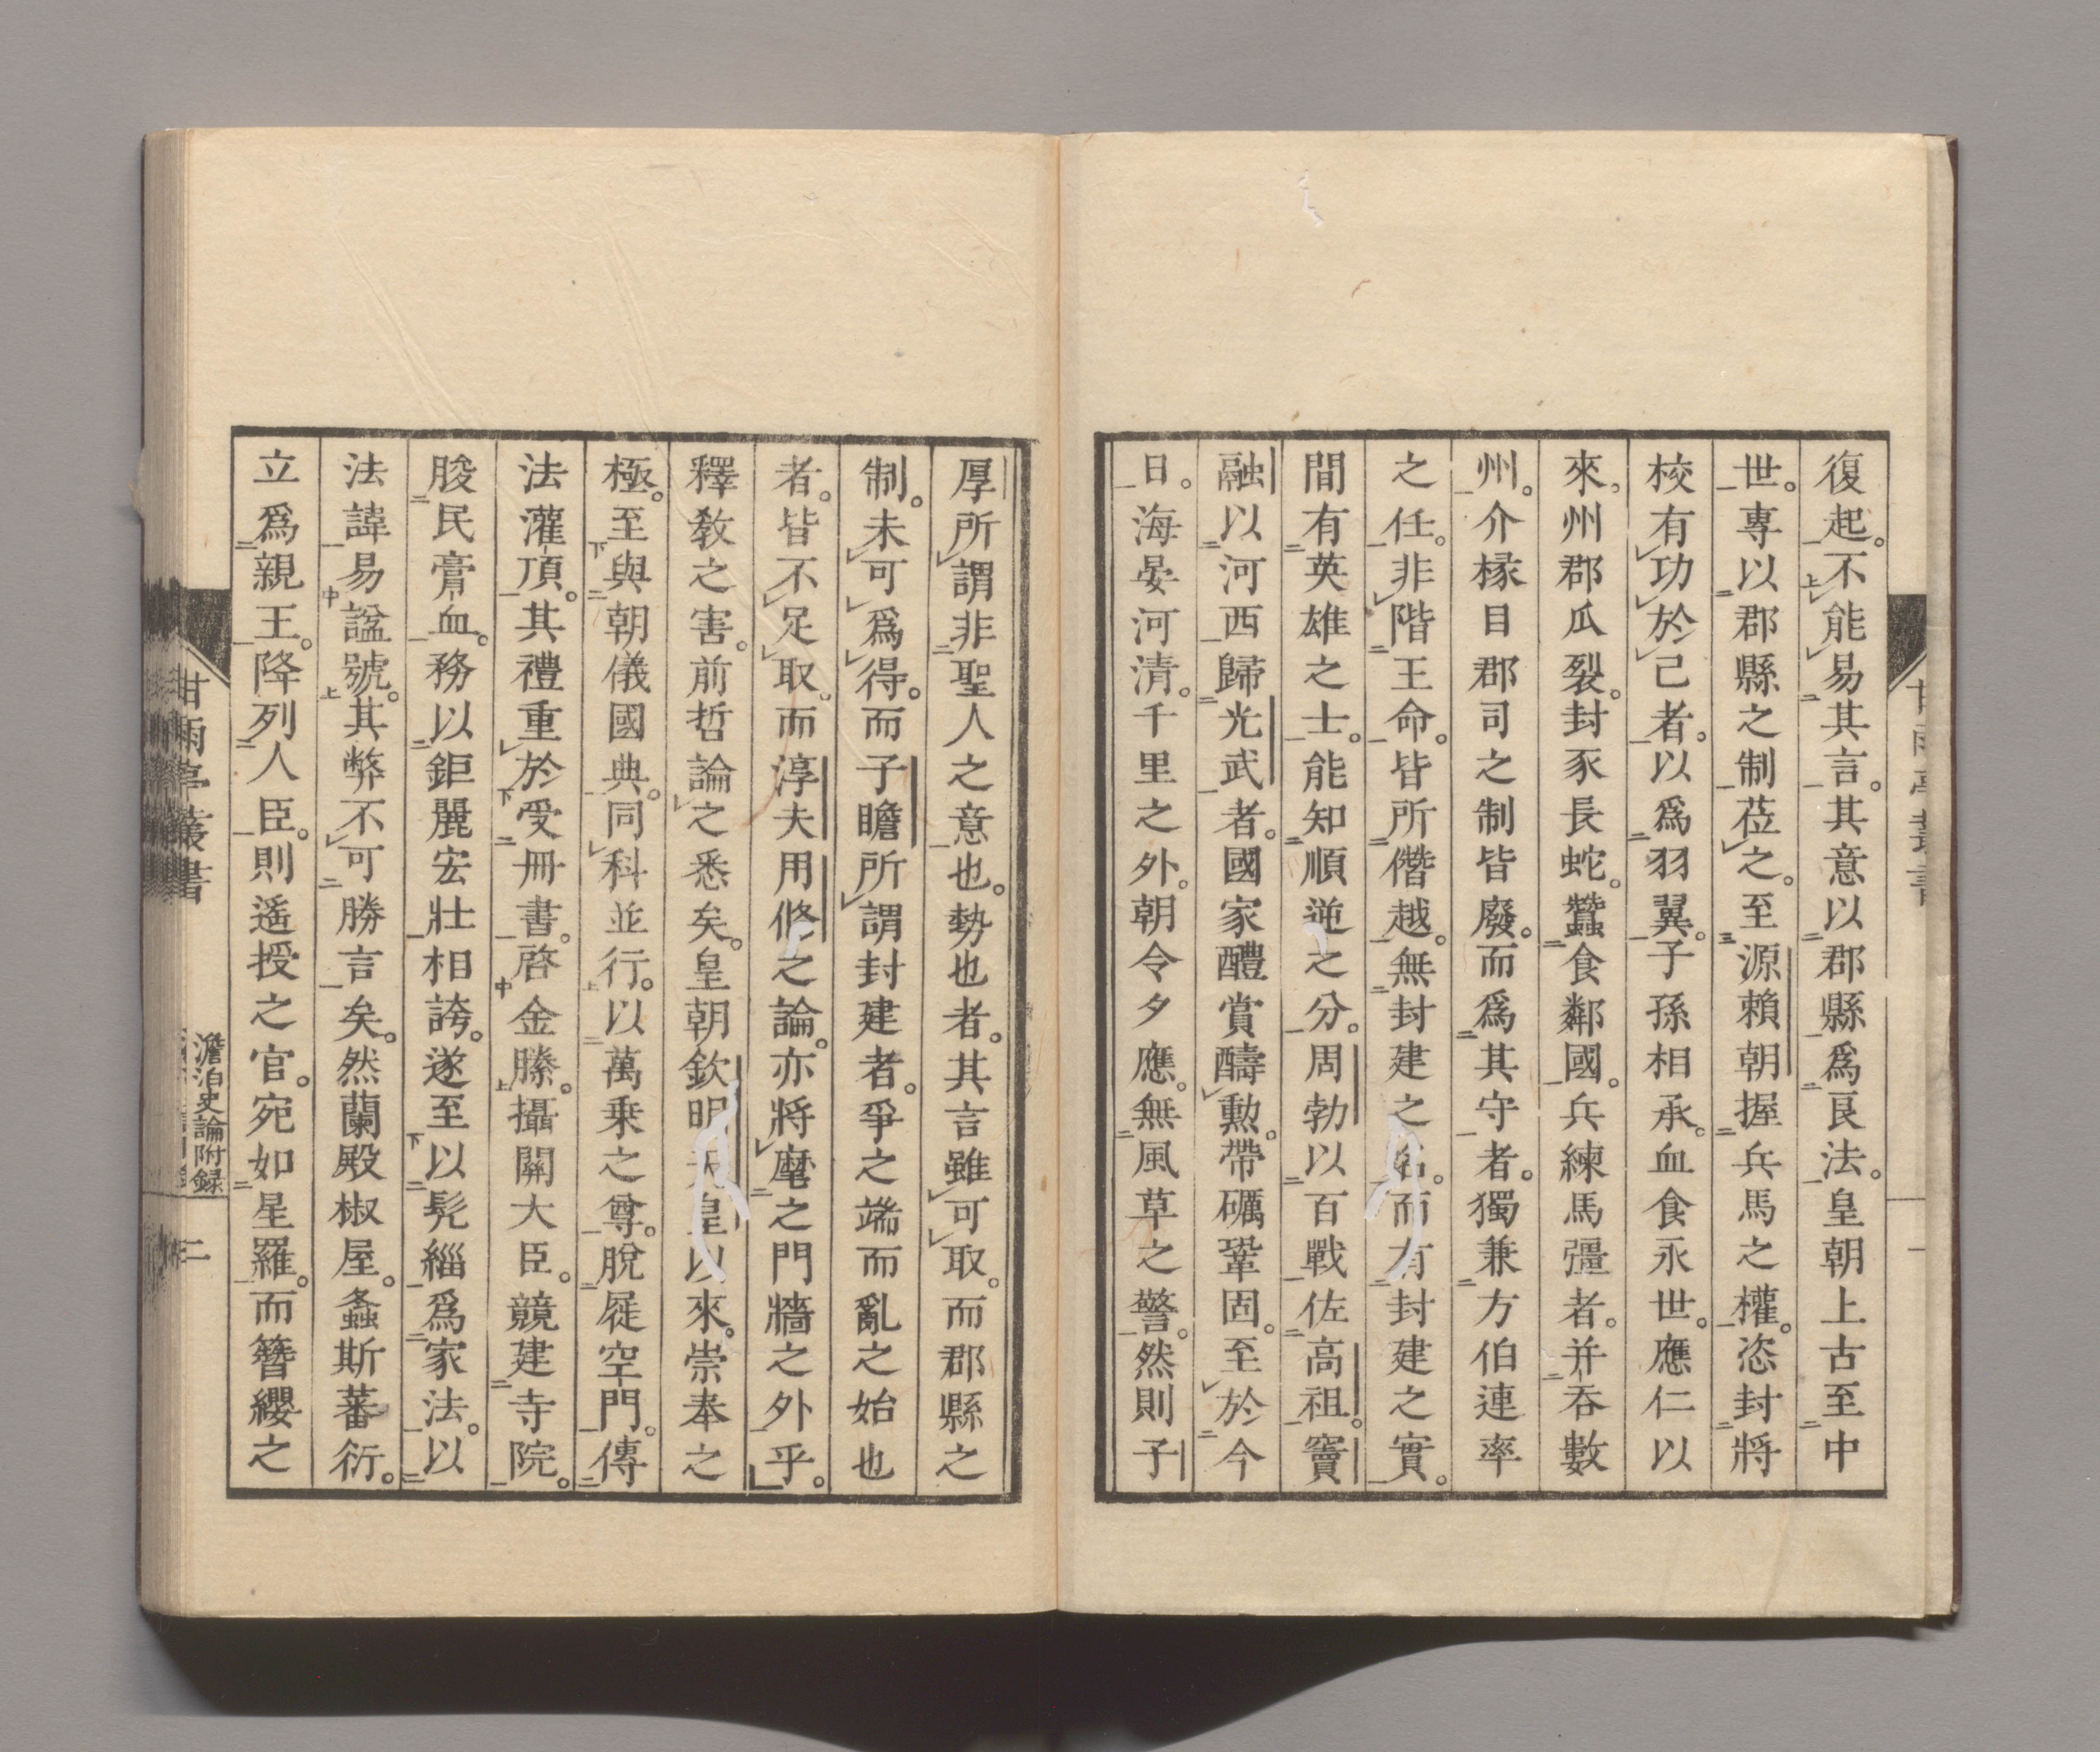 復起。不能易其言。其意以郡縣爲良法。皇朝上古至中
世。專以郡縣之制莅之。至源賴朝握兵馬之權。恣封將
校有功於己者。以爲羽翼。子孫相承。血食永世。應仁以
來。州郡瓜裂。封豕長蛇。蠶食鄰國。兵練馬彊者。并吞數
州。介椽目郡司之制皆廢。而爲其守者。獨兼方伯連率
之任。非階王命。皆所僭越。無封建之名。而有封建之實。
間有英雄之士。能知順逆之分。周勃以百戰佐高祖。竇
融以河西歸光武者。國家醴賞酬勲。帶礪鞏固。至於今
日。海晏河清。千里之外。朝令夕應。無風草之警。然則子
甘雨亭叢書
一
厚所謂非聖人之意也。勢也者。其言雖可取。而郡縣之
制。未可爲得。而子瞻所謂封建者。爭之端而亂之始也
者。皆不足取。而淳夫用修之論。亦將麾之門牆之外乎。
釋敎之害。前哲論之悉矣。皇朝欽明天皇以來。崇奉之
極。至與朝儀國典。同科並行。以萬乘之尊。脫屣空門。傳
法灌頂。其禮重於受冊書。啓金縢。攝關大臣。競建寺院。
朘民膏血。務以鉅麗宏壯相誇。遂至以髡緇爲家法。以
法諱易諡號。其弊不可勝言矣。然蘭殿椒屋。螽斯蕃衍。
立爲親王。降列人臣。則遙授之官。宛如星羅。而簪纓之
甘雨亭叢書
澹泊史論附録
二